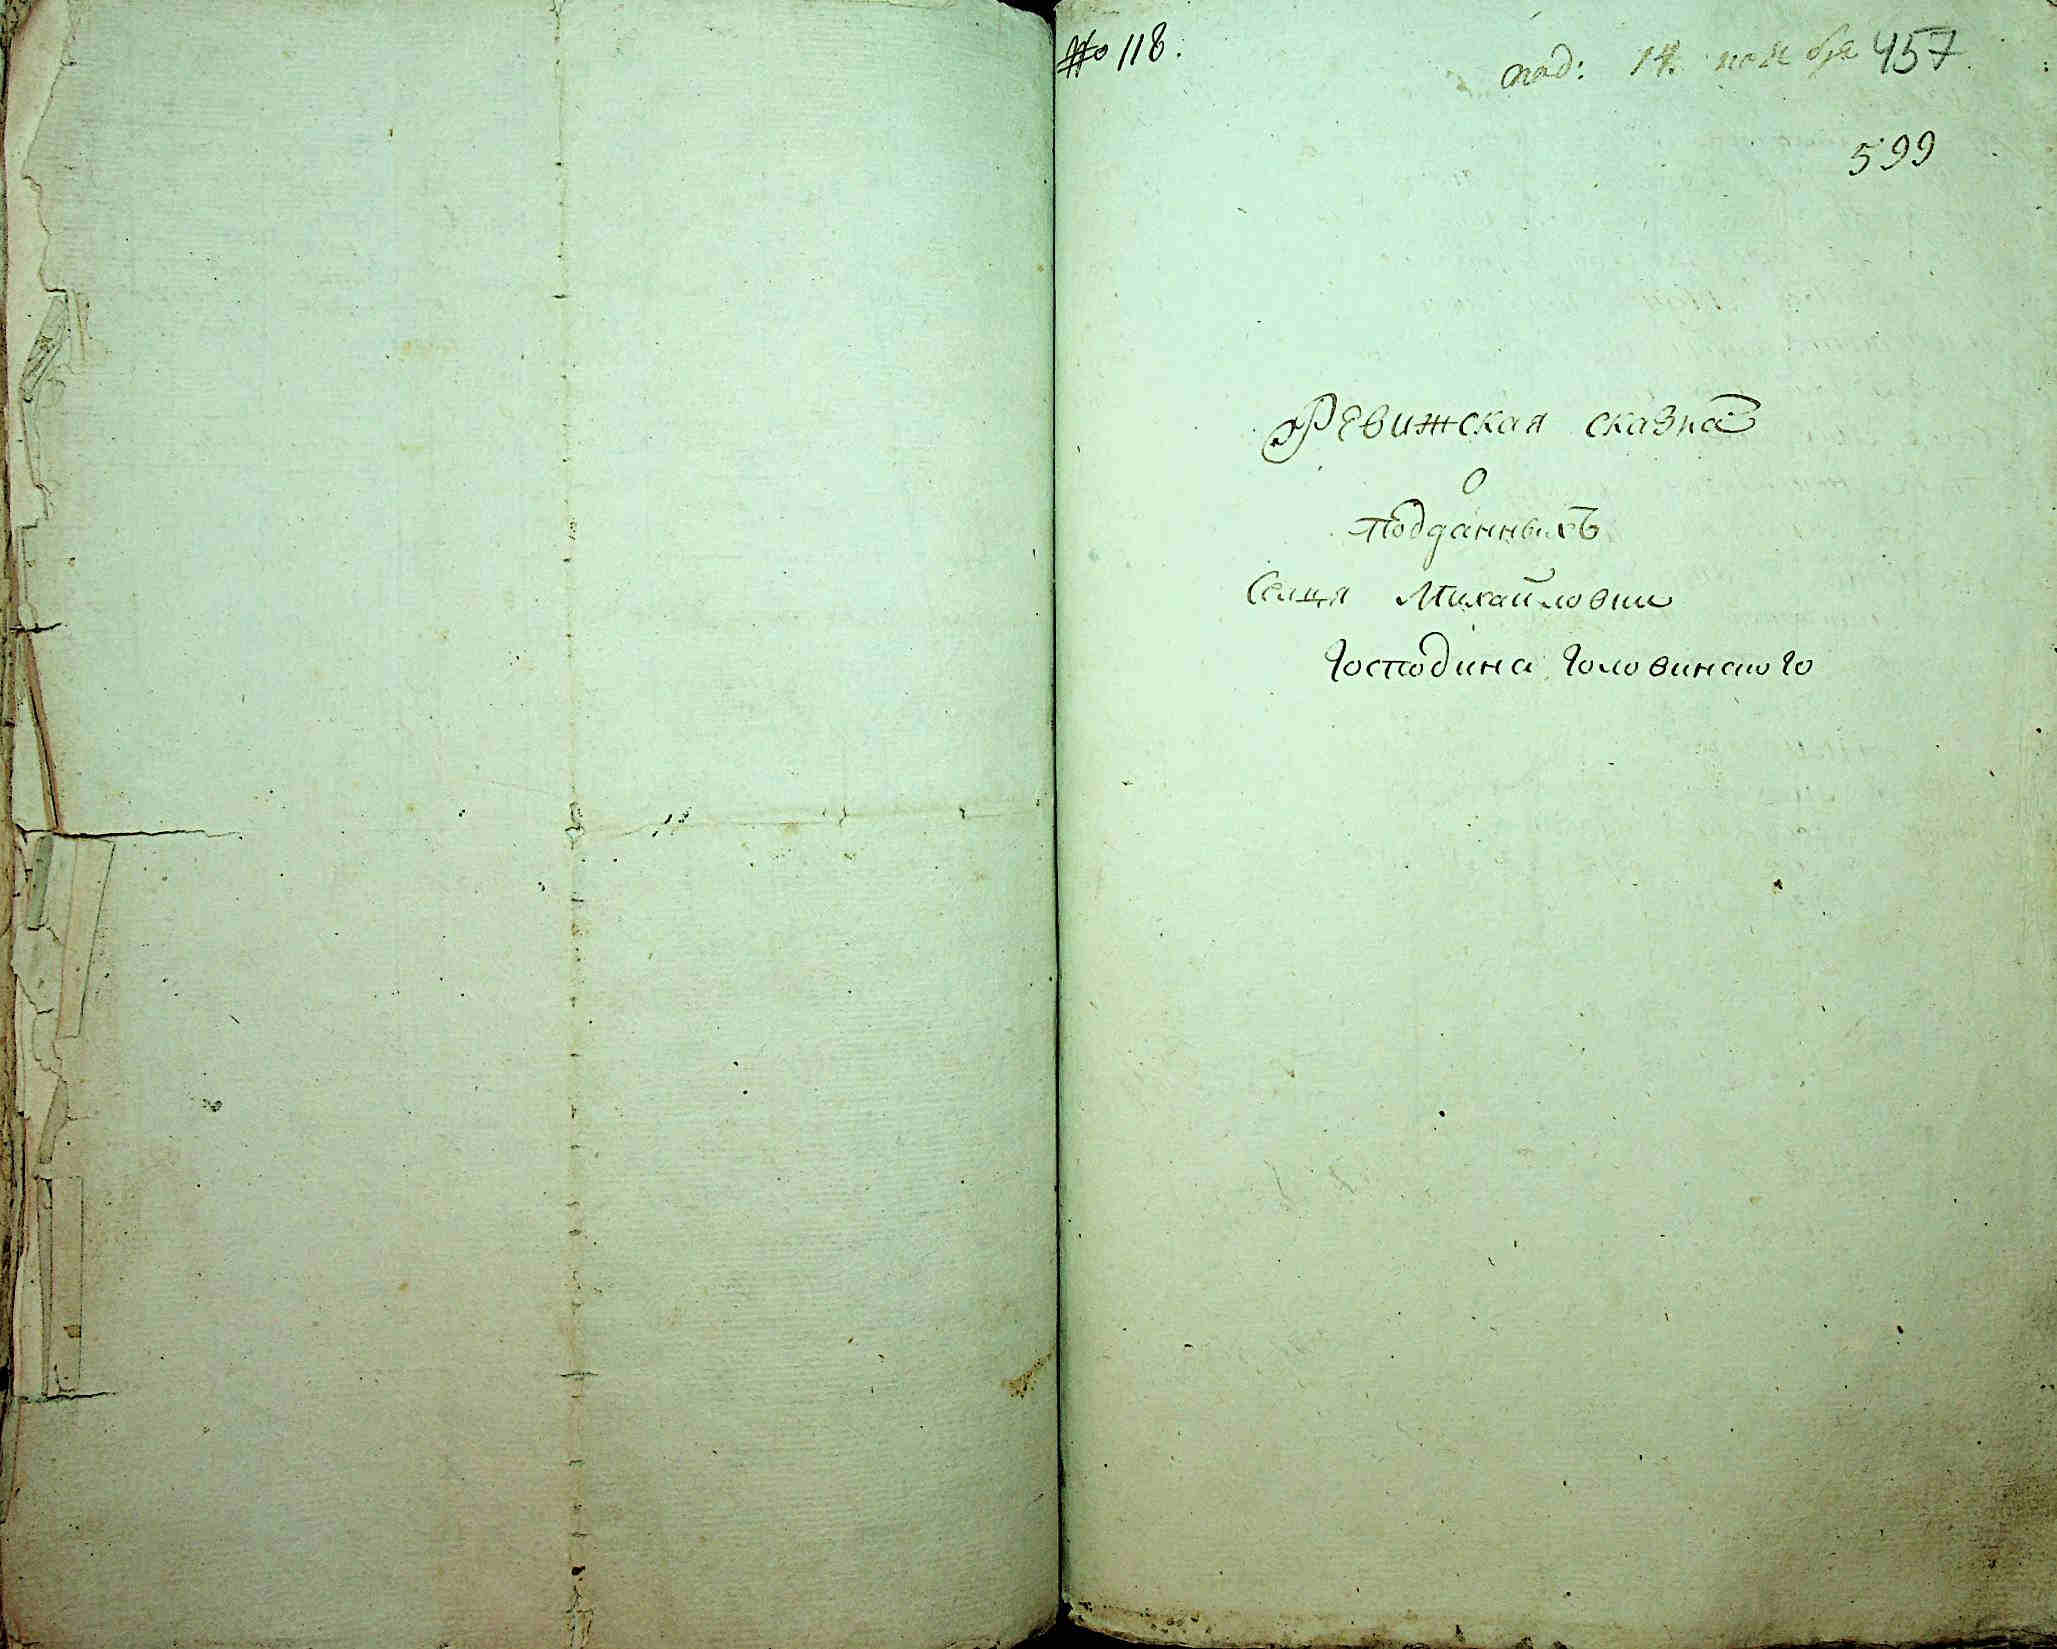 № 118.
под: 14. ноября 457
599
Ревижская сказка
о
подданныхъ
Селця Михайловки
Господина Головинского